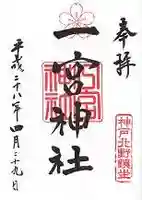 奉拝
一宮神社
神戸北野鎮坐
平成二十八年四月二十九日